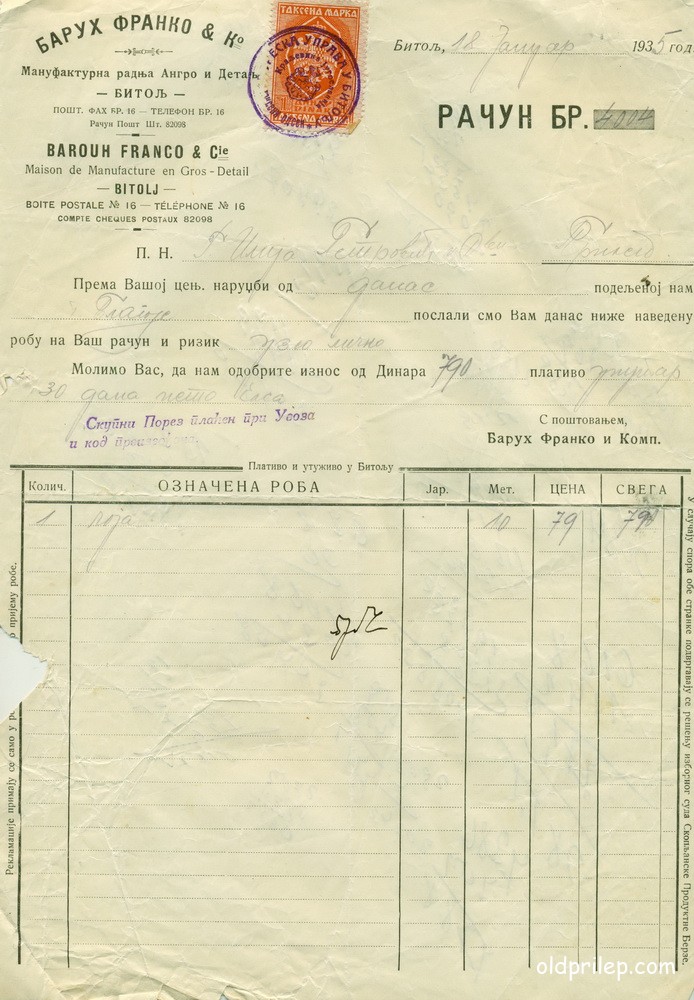 БАРУХ ФРАНКО & Ко
Мануфактурна радња Ангро и Детаљ
— БИТОЉ —
ПОШТ. ФАХ БР. 16 — ТЕЛЕФОН БР. 16
Рачун Пошт Шт. 82098
BAROUH FRANCO & Cie
Maison de Manufacture en Gros - Detail
— BITOLJ —
BOITE POSTALE № 16 — TÉLÉPHONE № 16
COMPTE CHEQUES POSTAUX 82098
ТАКСЕНА МАРКА
Битољ, 18 Јануар 1935 год.
РАЧУН БР. 4004
П. Н. Г. Илија Петровић
Према Вашој цењ. наруџби од данас подељеној нам
послали смо Вам данас ниже наведену
робу на Ваш рачун и ризик узео лично
Молимо Вас, да нам одобрите износ од Динара 790 плативо
30 дана
Скупни Порез плаћен при Увоза
и код
С поштовањем,
Барух Франко и Комп.
Плативо и утуживо у Битољу
Колич. ОЗНАЧЕНА РОБА Јар. Мет. ЦЕНА СВЕГА
1 10 79 790
Рекламације примају се само у пријему робе.
У случају спора обе странке подвргавају се решењу изборног суда Скопљанске Продуктне Берзе.
oldprilep.com